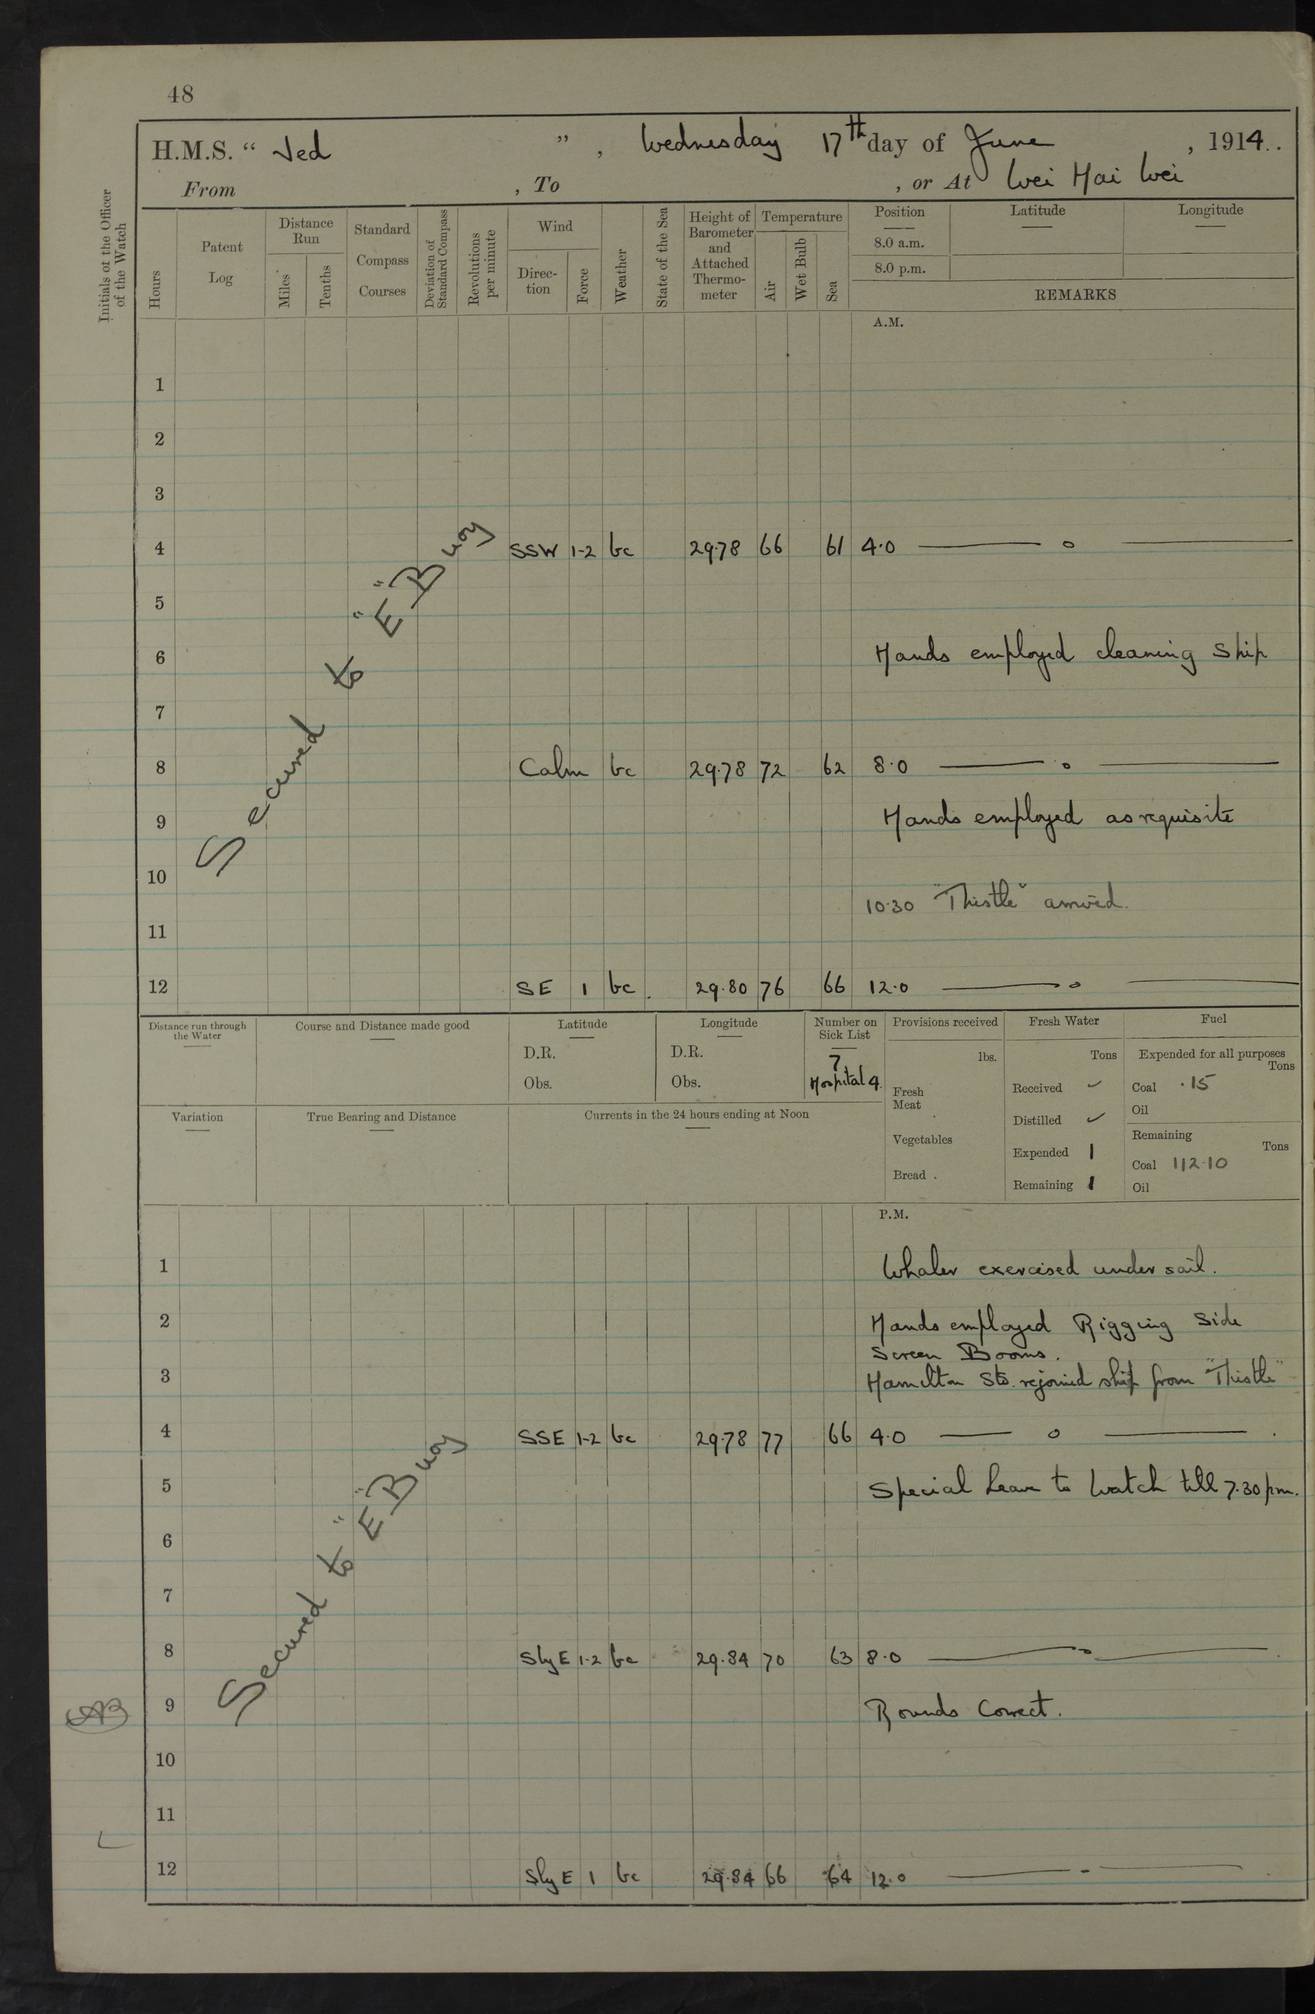 48
H.M.S. “ Jed ” , Wednesday 17th day of June , 1914.
From , To , or At Wei Hai Wei
Initials of the Officer of the Watch
Hours
Patent Log
Distance Run
Miles
Tenths
Standard Compass Courses
Deviation of Standard Compass
Revolutions per minute
Wind
Direction
Force
Weather
State of the Sea
Height of Barometer and Attached Thermometer
Temperature
Air
Wet Bulb
Sea
Position
8.0 a.m.
8.0 p.m.
Latitude
Longitude
REMARKS
A.M.
1
2
3
4 SSW 1-2 bc 29.78 66 61 4.0 —— o ——
5
6 Hands employed cleaning ship
7
8 Calm bc 29.78 72 62 8.0 —— o ——
9 Hands employed as requisite
10
10.30 "Thistle" arrived.
11
12 SE 1 bc 29.80 76 66 12.0 —— o ——
Secured to "E" Buoy
Distance run through the Water
Course and Distance made good
Latitude
D.R.
Obs.
Longitude
D.R.
Obs.
Number on Sick List
7
Hospital 4
Provisions received
lbs.
Fresh Meat
Vegetables
Bread
Fresh Water
Tons
Received ✓
Distilled ✓
Expended 1
Remaining 1
Fuel
Expended for all purposes
Tons
Coal .15
Oil
Remaining
Tons
Coal 112.10
Oil
Variation
True Bearing and Distance
Currents in the 24 hours ending at Noon
P.M.
1 Whaler exercised under sail.
2 Hands employed Rigging Side
Screen Booms.
3 Hamilton Sto. rejoined ship from "Thistle"
4 SSE 1-2 bc 29.78 77 66 4.0 —— o ——
5 Special Leave to Watch till 7.30 pm.
6
7
8 SlyE 1-2 bc 29.84 70 63 8.0 —— o ——
9 Rounds Correct.
10
11
12 SlyE 1 bc 29.84 66 64 12.0 —— - ——
Secured to "E" Buoy